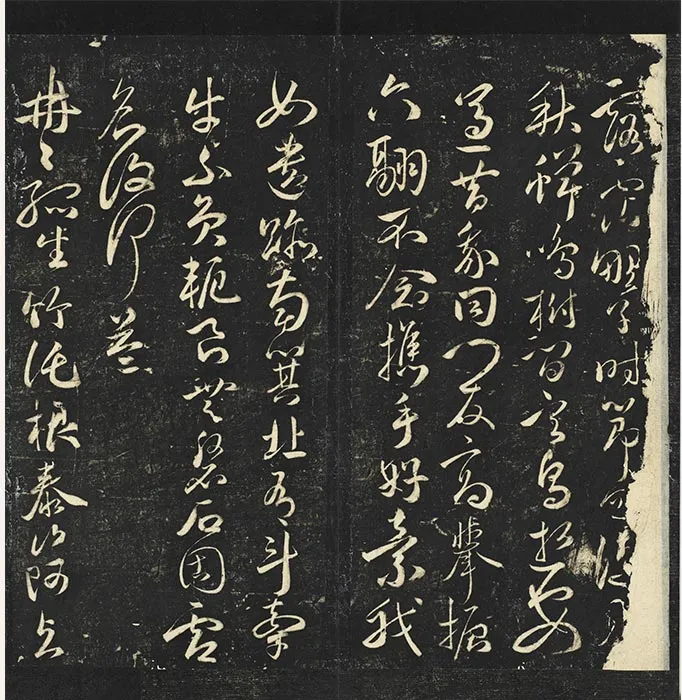 露沾野草時節忽復易
秋蟬鳴樹間玄鳥逝安
適昔我同門友高舉振
六翮不念攜手好棄我
如遺跡南箕北有斗牽
牛不負軛良無磐石固虛
名復何益
冉〻孤生竹託根泰山阿与